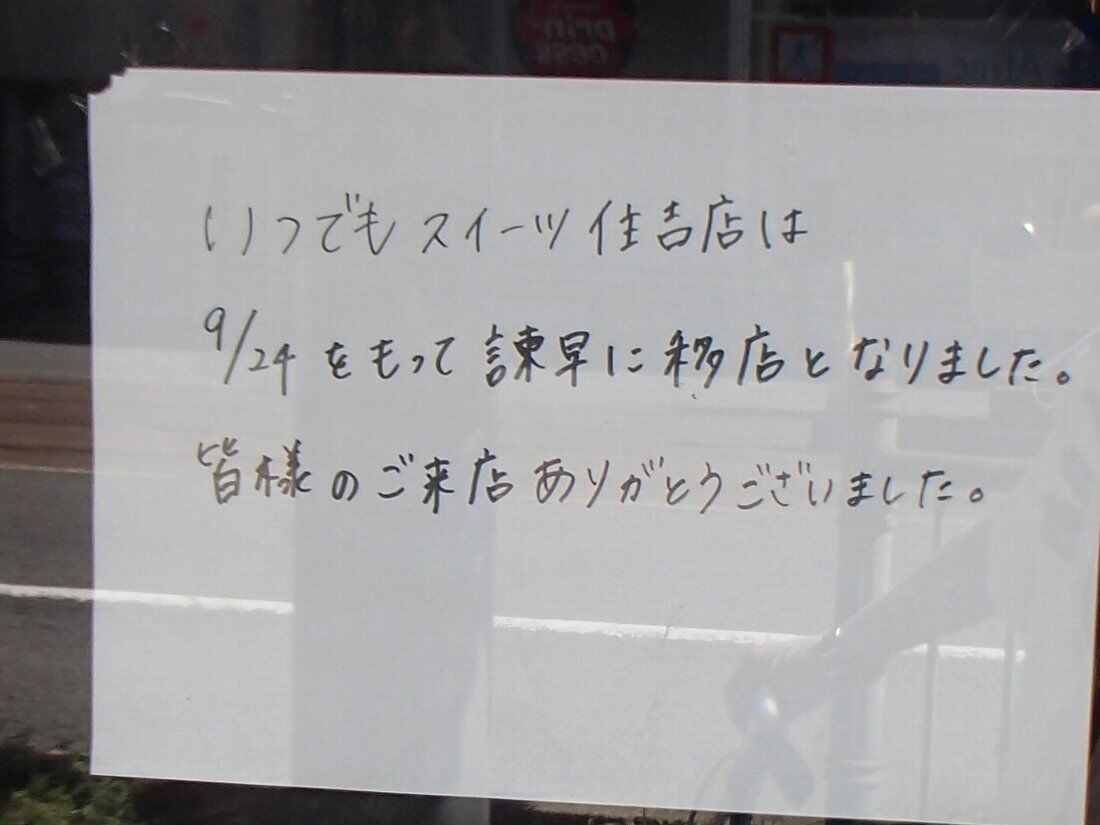 prin-
cess
いつでもスイーツ住吉店は
9/24をもって諫早に移店となりました。
皆様のご来店ありがとうございました。